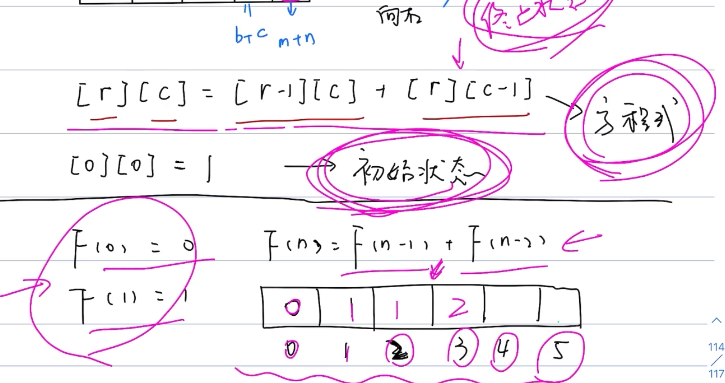 b+c m+n
[r][c] = [r-1][c] + [r][c-1] → 方程式
[0][0] = 1 → 初始状态
F(0) = 0 F(n) = F(n-1) + F(n-2) ←
F(1) = 1
0 1 1 2
0 1 2 3 4 5
114
117